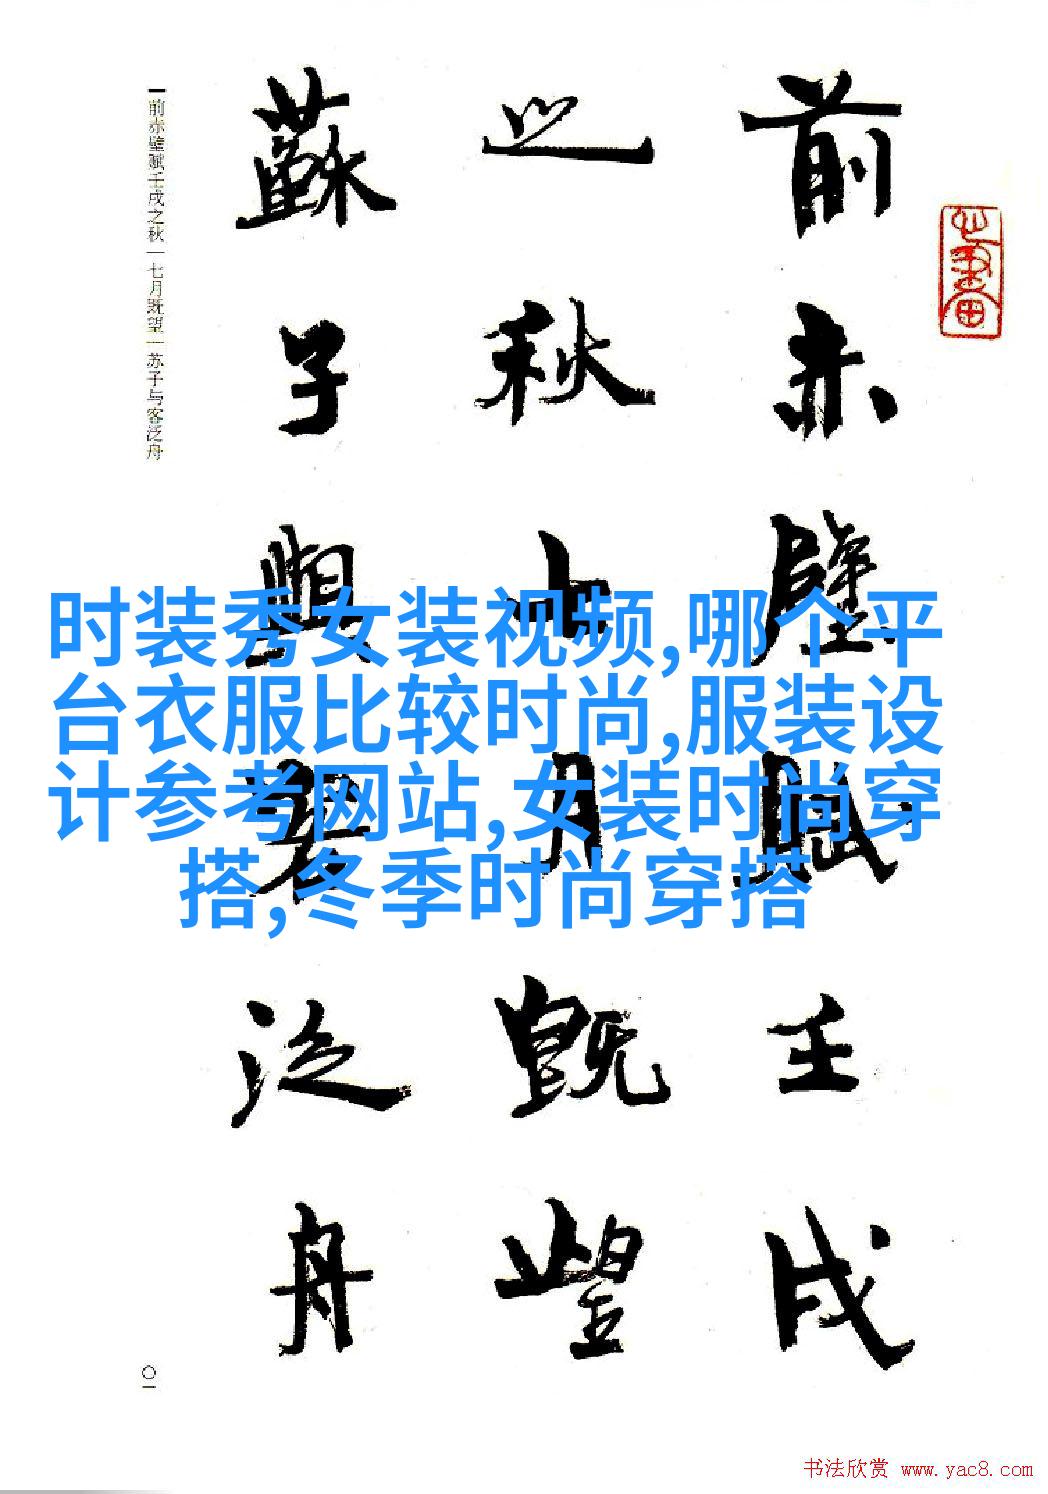 前赤壁赋壬戌之秋七月既望苏子与客泛舟
前赤壁賦壬戌
之秋七月既望
蘇子與客泛舟
时装秀女装视频,哪个平
台衣服比较时尚,服装设
计参考网站,女装时尚穿
搭,冬季时尚穿搭
〇一
书法欣赏 www.yac8.com